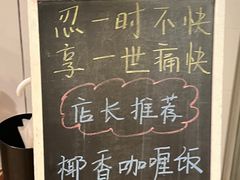 忍一时不快
享一世痛快
店长推荐
椰香咖喱饭